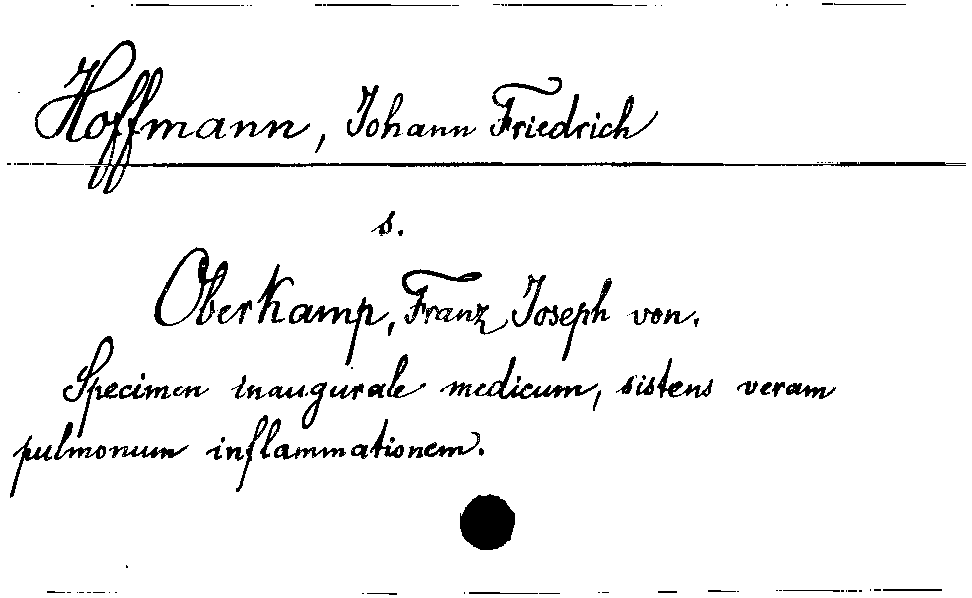 Hoffmann, Johann Friedrich
s.
Oberkamp, Franz Joseph von.
Specimen inaugurale medicum, sistens veram
pulmonum inflammationem.